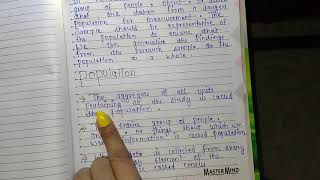 group of people, object, or
that are taken from a larger
Population for measurement, the
Sample should be representative of
the population to ensure that
we can generalise the findings
from the research sample to the
population as a whole.
Population
→ The aggregate of all units
pertaining to the study is called
the population.
entire group of people,
or things about which we
information is called population
data is collected from every
element of the
is called
MASTERMIND